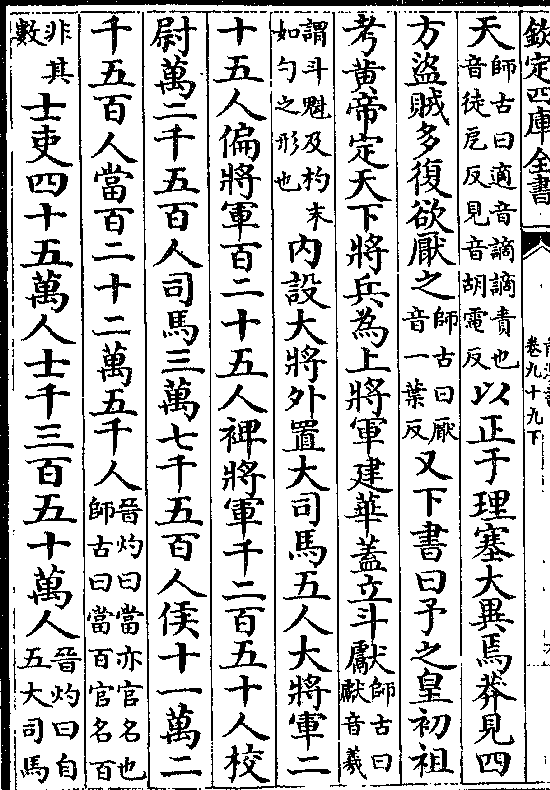 欽定四庫全書
卷九十九下
天師古曰適音謫謫責也音徒厄反見音胡電反以正于理塞大異焉莽見四
方盜賊多復欲厭之師古曰厭音一葉反又下書曰予之皇初祖
考黃帝定天下將兵為上將軍建華蓋立斗獻師古曰獻音羲
謂斗魁及杓末如勺之形也内設大將外置大司馬五人大將軍二
十五人偏將軍百二十五人裨將軍千二百五十人校
尉萬二千五百人司馬三萬七千五百人侯十一萬二
千五百人當百二十二萬五千人晉灼曰當亦官名也師古曰當百官名百
非其數士吏四十五萬人士千三百五十萬人晉灼曰自五大司馬